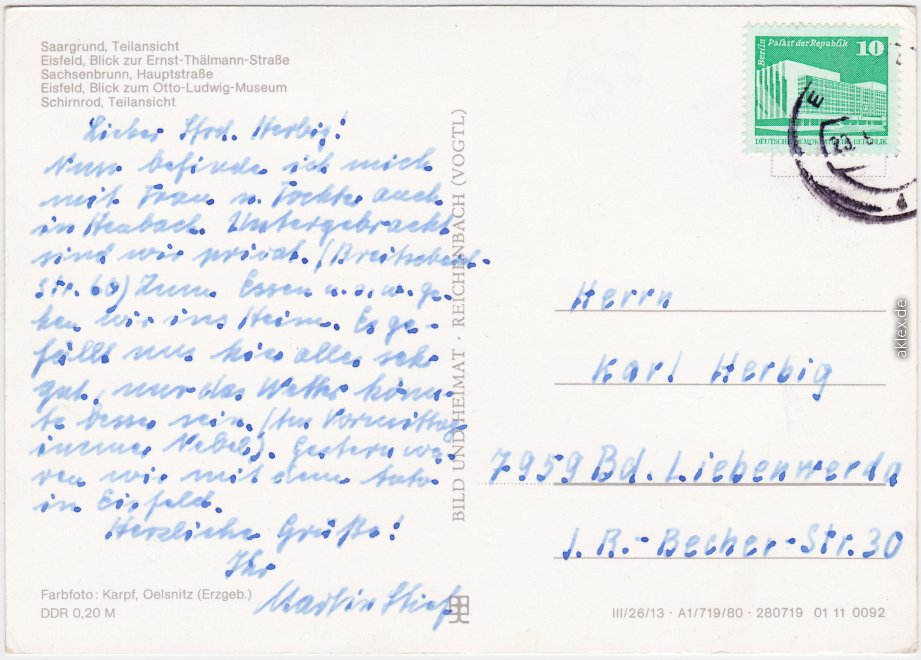 Saargrund, Teilansicht
Eisfeld, Blick zur Ernst-Thälmann-Straße
Sachsenbrunn, Hauptstraße
Eisfeld, Blick zum Otto-Ludwig-Museum
Schirnrod, Teilansicht
Lieber Herbig!
Nun befinde ich mich
mit Frau u. Tochter auch
in Heubach. Untergebracht
sind wir privat. (Breitscheid-
Str. 60) Zum Essen u.s.w. ge-
hen wir ins Heim. Es ge-
fällt uns hier alles sehr
gut, nur das Wetter könn-
te besser sein. (Am Vormittag
immer Nebel). Gestern wa-
ren wir mit dem Auto
in Eisfeld.
Herzliche Grüße!
Ihr
Martin
Farbfoto: Karpf, Oelsnitz (Erzgeb.)
DDR 0,20 M
BILD UND HEIMAT · REICHENBACH (VOGTL)
Berlin Palast der Republik 10
DEUTSCHE DEMOKRATISCHE REPUBLIK
Herrn
Karl Herbig
7959 Bd. Liebenwerda
J.R.-Becher-Str. 30
III/26/13 · A1/719/80 · 280719 01 11 0092
aklex.de